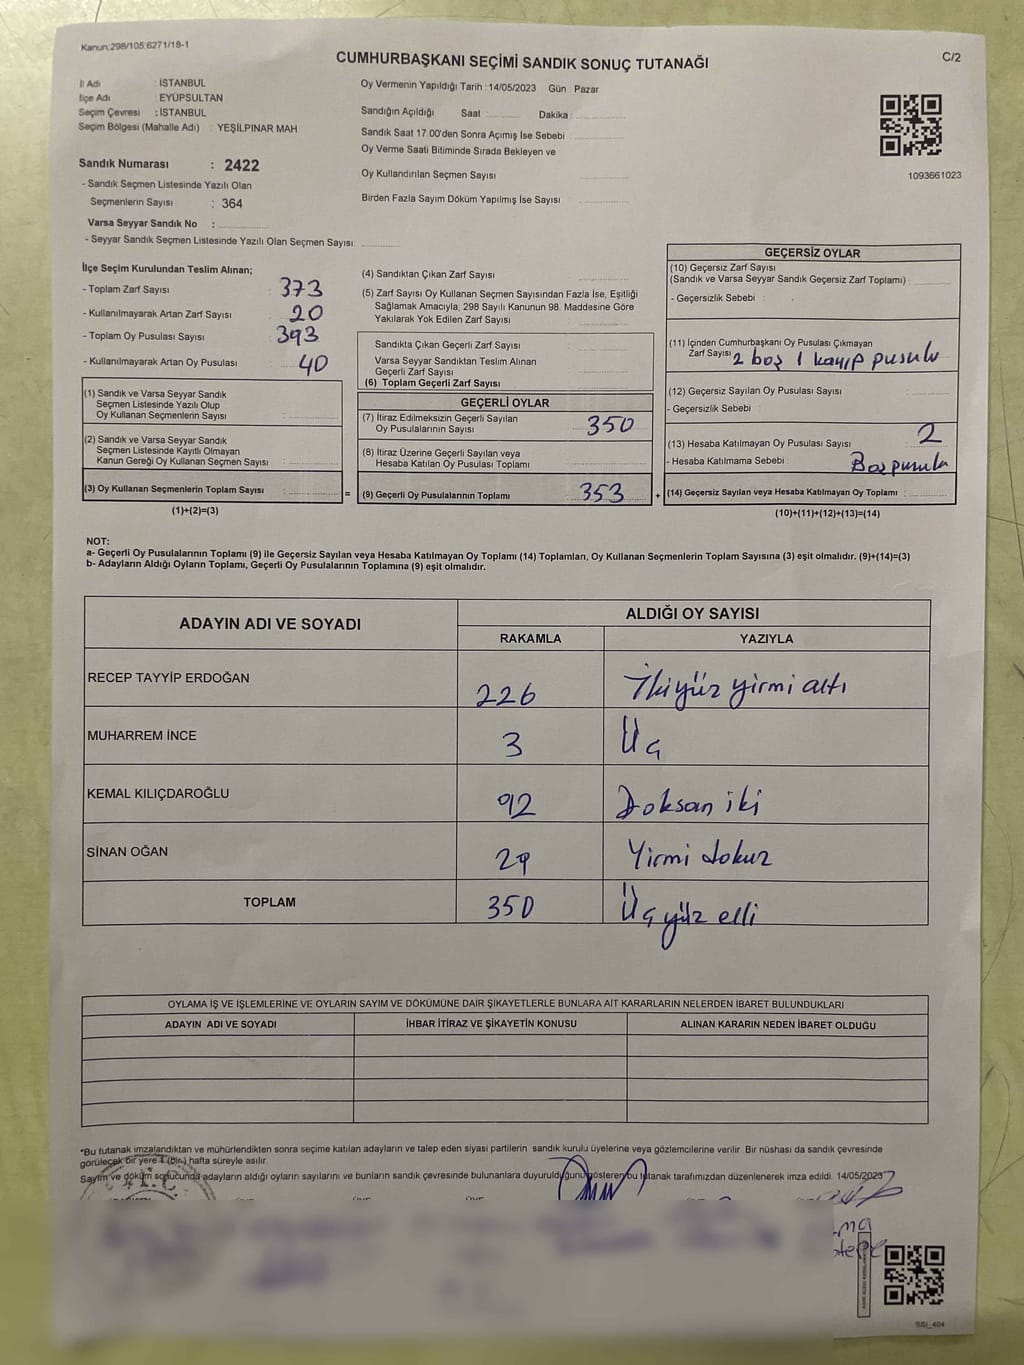 Kanun:298/105:6271/18-1
CUMHURBAŞKANI SEÇİMİ SANDIK SONUÇ TUTANAĞI
C/2
İl Adı : İSTANBUL
İlçe Adı : EYÜPSULTAN
Seçim Çevresi : İSTANBUL
Seçim Bölgesi (Mahalle Adı) : YEŞİLPINAR MAH
Sandık Numarası : 2422
- Sandık Seçmen Listesinde Yazılı Olan
Seçmenlerin Sayısı : 364
Varsa Seyyar Sandık No :
- Seyyar Sandık Seçmen Listesinde Yazılı Olan Seçmen Sayısı:
Oy Vermenin Yapıldığı Tarih : 14/05/2023 Gün : Pazar
Sandığın Açıldığı Saat Dakika :
Sandık Saat 17.00'den Sonra Açımış İse Sebebi
Oy Verme Saati Bitiminde Sırada Bekleyen ve
Oy Kullandırılan Seçmen Sayısı
Birden Fazla Sayım Döküm Yapılmış İse Sayısı
1093661023
İlçe Seçim Kurulundan Teslim Alınan;
- Toplam Zarf Sayısı : 373
- Kullanılmayarak Artan Zarf Sayısı : 20
- Toplam Oy Pusulası Sayısı : 393
- Kullanılmayarak Artan Oy Pusulası : 40
(1) Sandık ve Varsa Seyyar Sandık
Seçmen Listesinde Yazılı Olup
Oy Kullanan Seçmenlerin Sayısı :
(2) Sandık ve Varsa Seyyar Sandık
Seçmen Listesinde Kayıtlı Olmayan
Kanun Gereği Oy Kullanan Seçmen Sayısı :
(3) Oy Kullanan Seçmenlerin Toplam Sayısı :
(1)+(2)=(3)
=
(4) Sandıktan Çıkan Zarf Sayısı
(5) Zarf Sayısı Oy Kullanan Seçmen Sayısından Fazla İse, Eşitliği
Sağlamak Amacıyla; 298 Sayılı Kanunun 98. Maddesine Göre
Yakılarak Yok Edilen Zarf Sayısı
Sandıkta Çıkan Geçerli Zarf Sayısı
Varsa Seyyar Sandıktan Teslim Alınan
Geçerli Zarf Sayısı
(6) Toplam Geçerli Zarf Sayısı
GEÇERLİ OYLAR
(7) İtiraz Edilmeksizin Geçerli Sayılan
Oy Pusulalarının Sayısı 350
(8) İtiraz Üzerine Geçerli Sayılan veya
Hesaba Katılan Oy Pusulası Toplamı
(9) Geçerli Oy Pusulalarının Toplamı 353
+
GEÇERSİZ OYLAR
(10) Geçersiz Zarf Sayısı
(Sandık ve Varsa Seyyar Sandık Geçersiz Zarf Toplamı) :
- Geçersizlik Sebebi :
(11) İçinden Cumhurbaşkanı Oy Pusulası Çıkmayan
Zarf Sayısı 2 boş 1 kayıp pusula
(12) Geçersiz Sayılan Oy Pusulası Sayısı
- Geçersizlik Sebebi :
(13) Hesaba Katılmayan Oy Pusulası Sayısı : 2
- Hesaba Katılmama Sebebi : Boş pusula
(14) Geçersiz Sayılan veya Hesaba Katılmayan Oy Toplamı :
(10)+(11)+(12)+(13)=(14)
NOT:
a- Geçerli Oy Pusulalarının Toplamı (9) ile Geçersiz Sayılan veya Hesaba Katılmayan Oy Toplamı (14) Toplamları, Oy Kullanan Seçmenlerin Toplam Sayısına (3) eşit olmalıdır. (9)+(14)=(3)
b- Adayların Aldığı Oyların Toplamı, Geçerli Oy Pusulalarının Toplamına (9) eşit olmalıdır.
ADAYIN ADI VE SOYADI
ALDIĞI OY SAYISI
RAKAMLA YAZIYLA
RECEP TAYYİP ERDOĞAN 226 İkiyüz yirmi altı
MUHARREM İNCE 3 Üç
KEMAL KILIÇDAROĞLU 92 Doksan iki
SİNAN OĞAN 29 Yirmi dokuz
TOPLAM 350 Üç yüz elli
OYLAMA İŞ VE İŞLEMLERİNE VE OYLARIN SAYIM VE DÖKÜMÜNE DAİR ŞİKAYETLERLE BUNLARA AİT KARARLARIN NELERDEN İBARET BULUNDUKLARI
ADAYIN ADI VE SOYADI İHBAR İTİRAZ VE ŞİKAYETİN KONUSU ALINAN KARARIN NEDEN İBARET OLDUĞU
*Bu tutanak imzalandıktan ve mühürlendikten sonra seçime katılan adayların ve talep eden siyasi partilerin sandık kurulu üyelerine veya gözlemcilerine verilir. Bir nüshası da sandık çevresinde
görülecek bir yere 1 (bir) hafta süreyle asılır.
Sayım ve döküm sonucunda adayların aldığı oyların sayılarını ve bunların sandık çevresinde bulunanlara duyurulduğunu gösteren bu tutanak tarafımızdan düzenlenerek imza edildi. 14/05/2023
T.C.
SSI_404